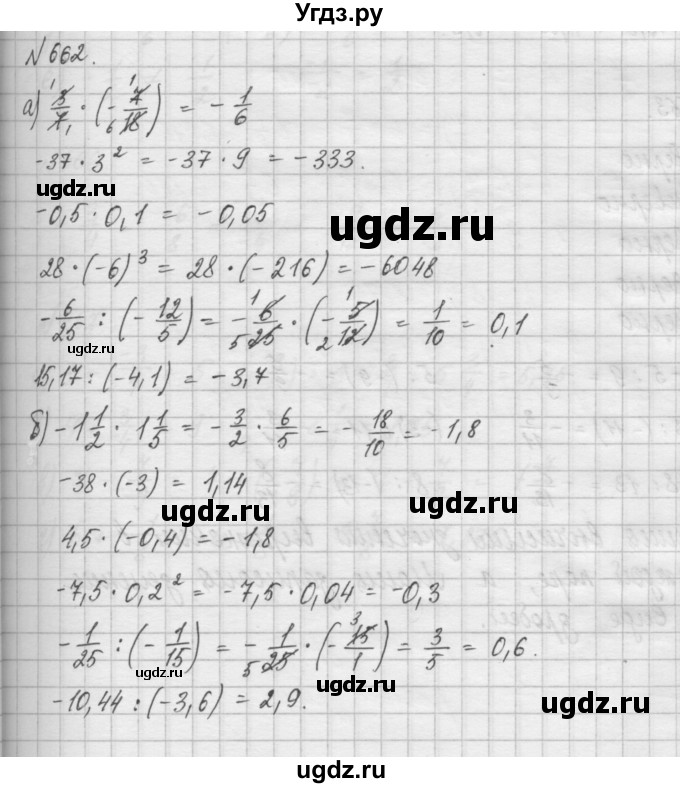 Угдз.ру
№662.
а) 3/7 · (-7/18) = -1/6
-37 · 3² = -37 · 9 = -333.
ugdz.ru
-0,5 · 0,1 = -0,05
ugdz.ru
28 · (-6)³ = 28 · (-216) = -6048
-6/25 : (-12/5) = -6/25 · (-5/12) = 1/10 = 0,1
ugdz.ru
15,17 : (-4,1) = -3,7
б) -1 1/2 · 1 1/5 = -3/2 · 6/5 = -18/10 = -1,8
-38 · (-3) = 1,14
ugdz.ru ugdz.ru
4,5 · (-0,4) = -1,8
-7,5 · 0,2² = -7,5 · 0,04 = -0,3
-1/25 : (-1/15) = -1/25 · (-15/1) = 3/5 = 0,6.
ugdz.ru
ugdz.ru
-10,44 : (-3,6) = 2,9.
ugdz.ru
ugdz.ru